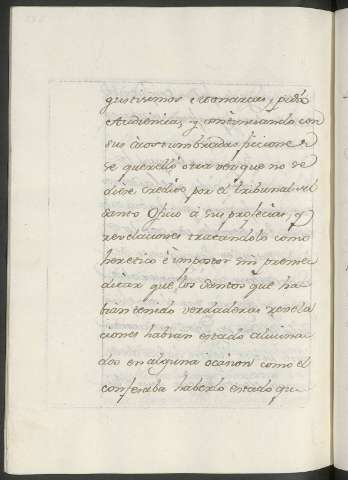 gustisimos Monarcas, pidió
Audiencia, y continuando con
sus acostumbradas ficcione s
se querelló otra vez que no se
diese credito por el tribunal del
Santo Oficio á sus profecias, y
revelaciones tratandolo como
heretico é impostor sin preme
ditar que los Santos que ha
bian tenido verdaderas revela
ciones habian estado alucina
dos en alguna ocasion como el
confesaba haberlo estado qu-